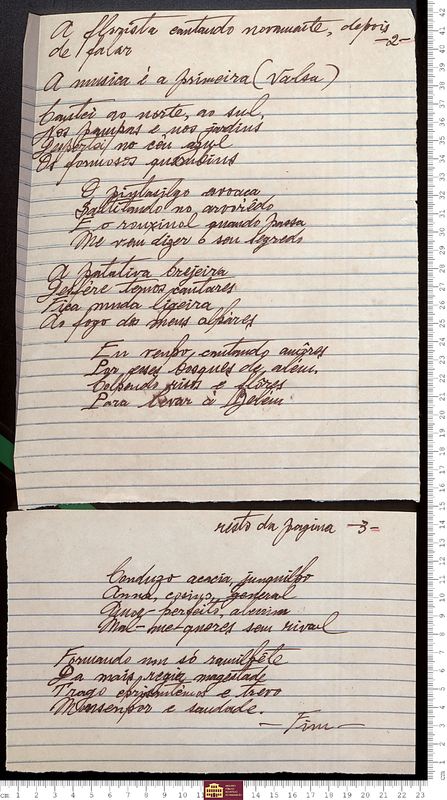 A florista cantando novamente, depois
-2-
de falar
A musica é a primeira (Valsa)
Cantei ao norte, ao sul,
Nos pampas e nos jardins
Despertei no céu azul
Os formosos querubins
O pintasilgo avoaça
Saltitando no arvorêdo
E o rouxinol quando passa
Me vem dizer o seu segredo
A patativa brejeira
Desfére temos cantares
Fica muda ligeira
Ao fogo dos meus alpáres
Eu venho, cantando amôres
Por esses bosques de alem,
Colhendo risos e flôres
Para levar á Belem
resto da pagina -3-
Conduzo acacia, junquilho
Anna, cosmo, general
Amor-perfeito, alecrim
Mal-me-queres sem rival
Formando um só ramilhête
Da mais regia magestade
Trago crisantemos e trevo
Monsenhor e saudade.
-Fim-